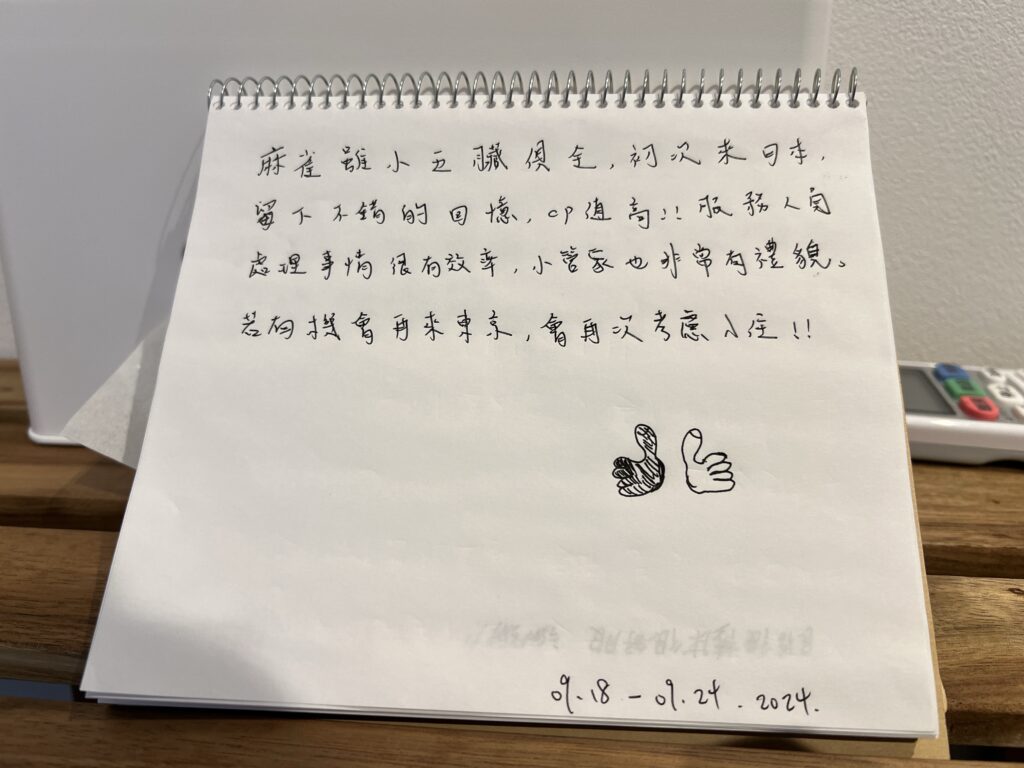 麻雀雖小五臟俱全,初次來日本,
留下不錯的回憶,cp值高!! 服務人員
處理事情很有效率,小管家也非常有禮貌。
若有機會再來東京,會再次考慮入住!!
09.18 - 09.24 . 2024.